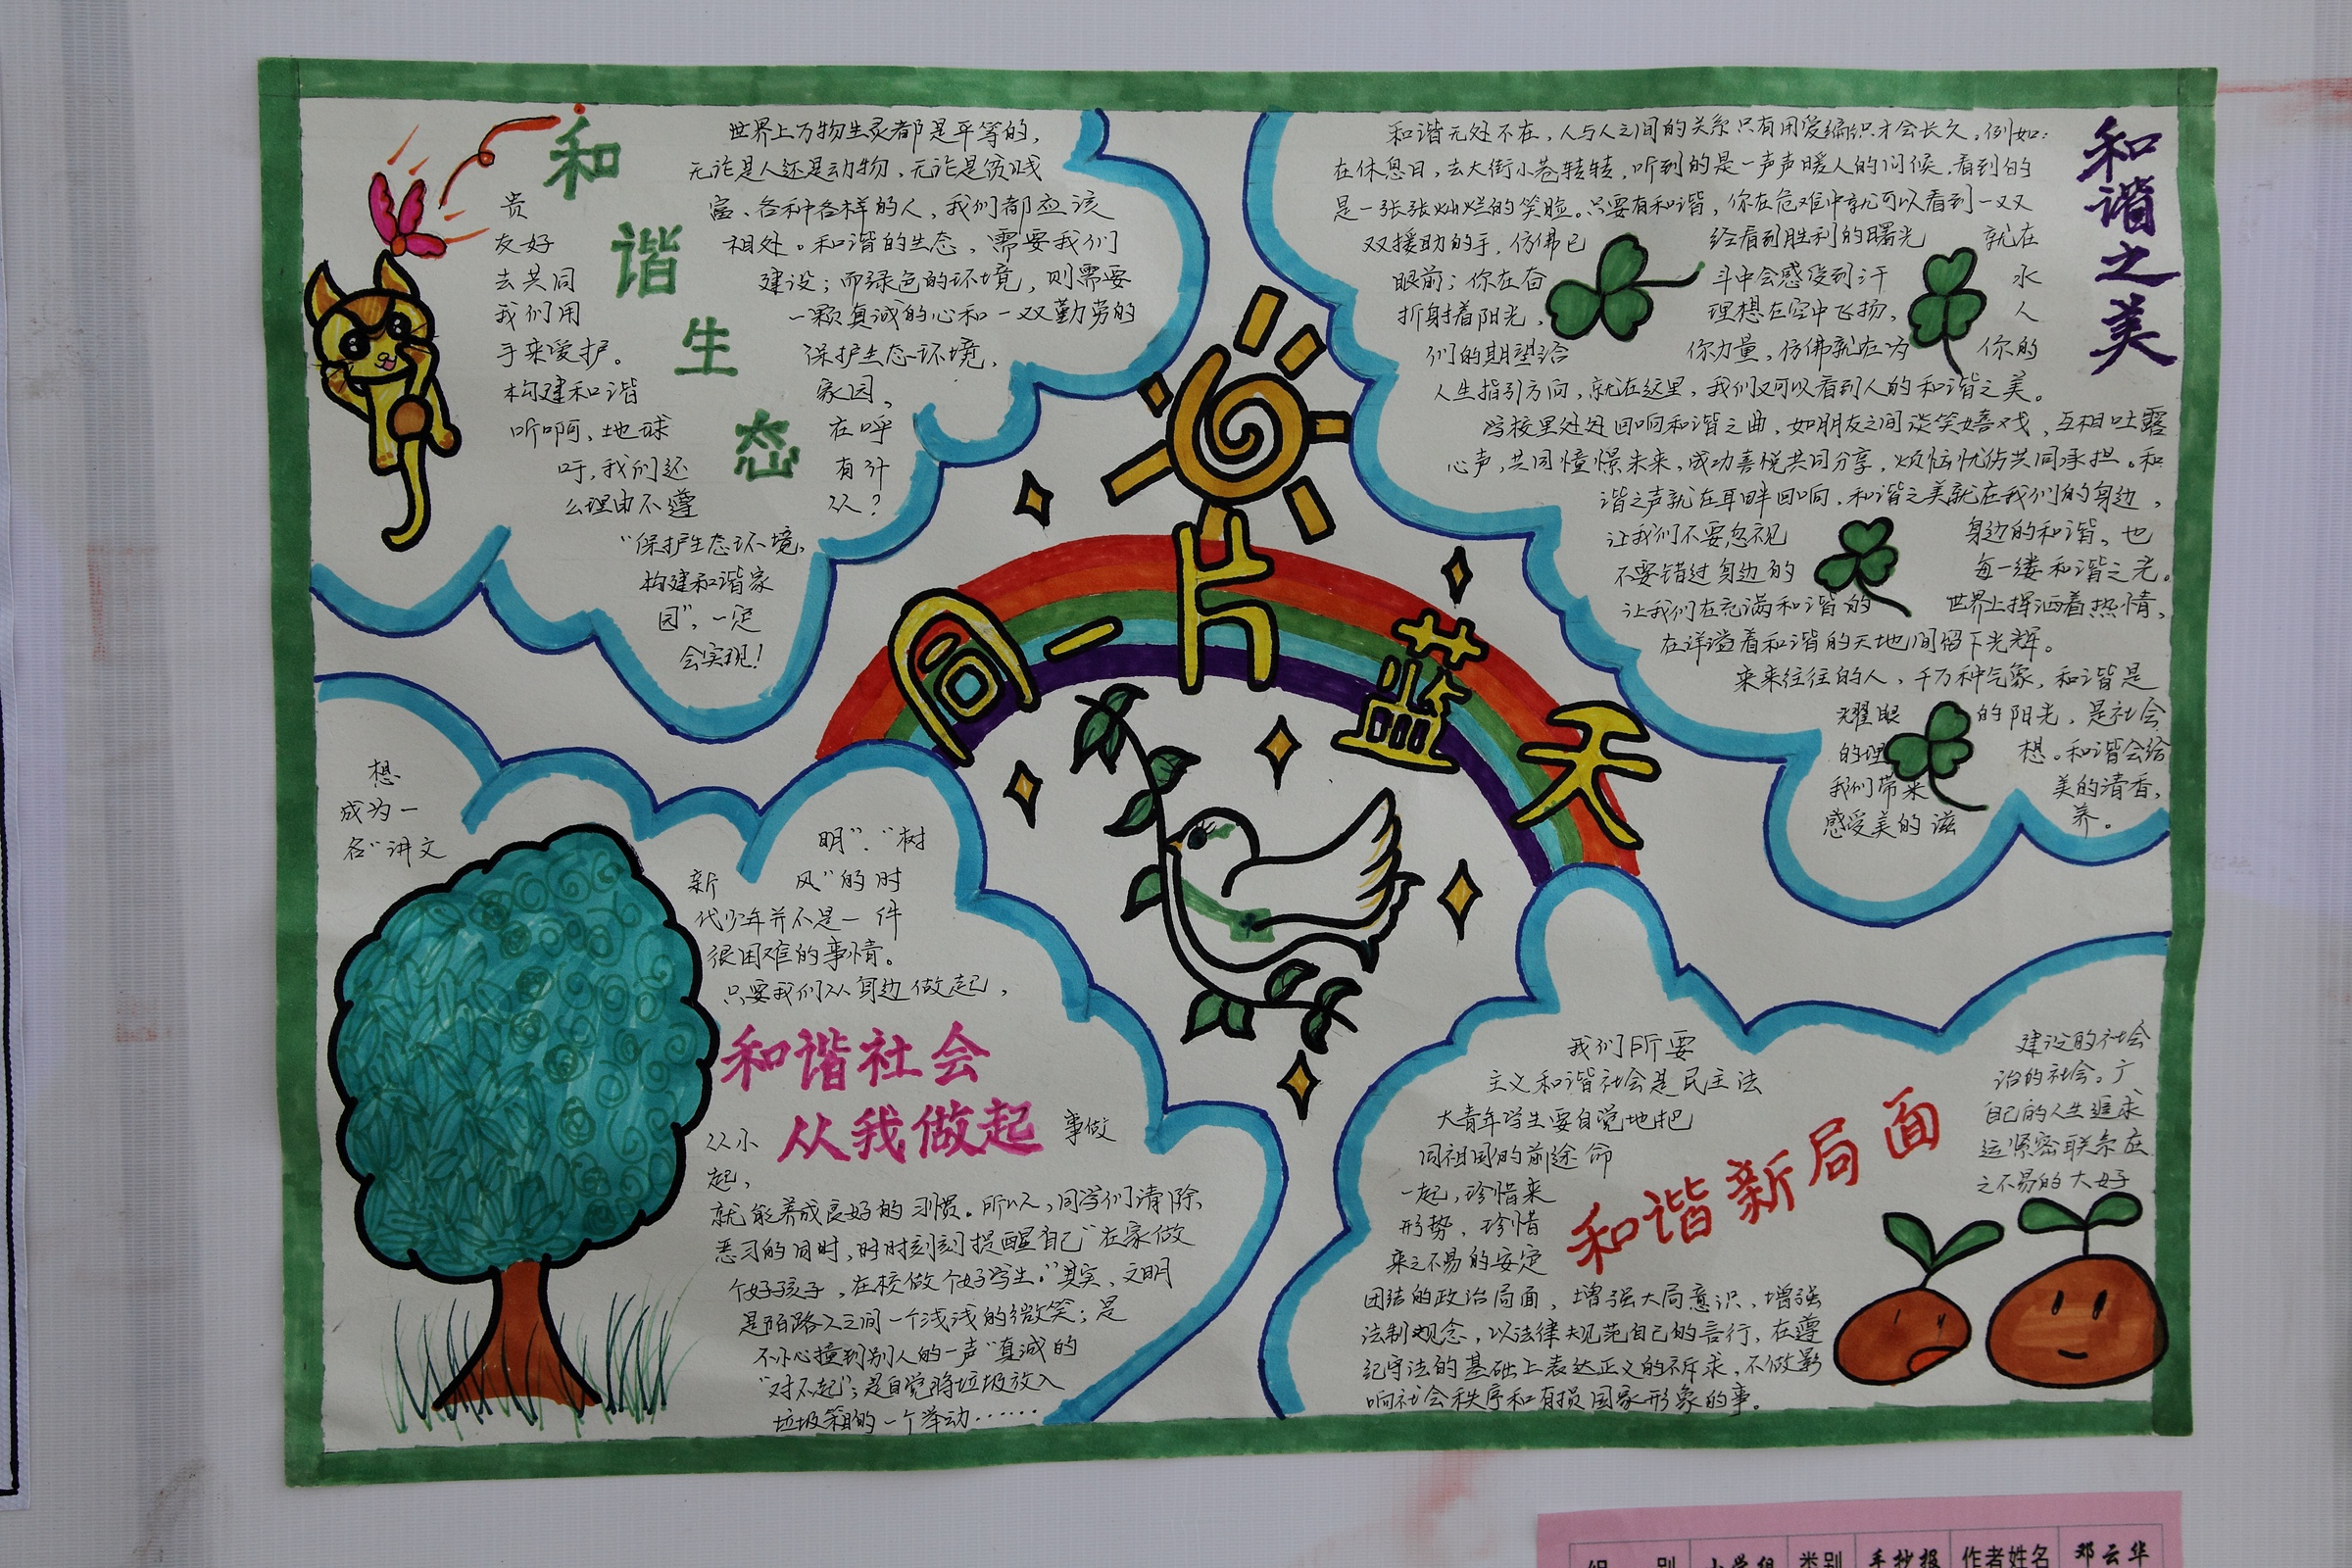 和谐生态
世界上万物生灵都是平等的，
无论是人还是动物，无论是贫贱
贵富、各种各样的人，我们都应该
友好相处。和谐的生态，需要我们
去共同建设；而绿色的环境，则需要
我们用一颗真诚的心和一双勤劳的
手来爱护。保护生态环境，
构建和谐家园，
听啊，地球在呼
吁，我们还有什
么理由不遵从？
“保护生态环境，
构建和谐家
园”，一定
会实现！
和谐之美
和谐无处不在，人与人之间的关系只有用爱编织才会长久，例如：
在休息日，去大街小巷转转，听到的是一声声暖人的问候，看到的
是一张张灿烂的笑脸。只要有和谐，你在危难中就可以看到一双又
双援助的手，仿佛已经看到胜利的曙光就在
眼前；你在奋斗中会感受到汗水
折射着阳光，理想在空中飞扬，人
们的期望给你力量，仿佛就在为你的
人生指引方向，就在这里，我们又可以看到人的和谐之美。
学校里处处回响和谐之曲，如朋友之间谈笑嬉戏，互相吐露
心声，共同憧憬未来，成功喜悦共同分享，烦恼忧伤共同承担。和
谐之声就在耳畔回响，和谐之美就在我们的身边，
让我们不要忽视身边的和谐，也
不要错过身边的每一缕和谐之光。
让我们在充满和谐的世界上挥洒着热情，
在洋溢着和谐的天地间留下光辉。
来来往往的人，千万种气象，和谐是
耀眼的阳光，是社会
的理想。和谐会给
我们带来美的清香，
感受美的滋养。
同一片蓝天
想
成为一
名“讲文明”、“树
新风”的时
代少年并不是一件
很困难的事情。
只要我们从身边做起，
和谐社会
从我做起
从小事做
起，
就能养成良好的习惯。所以，同学们请除
恶习的同时，时时刻刻提醒自己“在家做
个好孩子，在校做个好学生。”其实，文明
是陌路人之间一个浅浅的微笑；是
不小心撞到别人的一声“真诚的
“对不起”；是自觉将垃圾放入
垃圾箱的一个举动……
和谐新局面
我们所要建设的社会
主义和谐社会是民主法治的社会。广
大青年学生要自觉地把自己的人生追求
同祖国的前途命运紧密联系在
一起，珍惜来之不易的大好
形势，珍惜
来之不易的安定
团结的政治局面，增强大局意识，增强
法制观念，以法律规范自己的言行，在遵
纪守法的基础上表达正义的诉求，不做影
响社会秩序和有损国家形象的事。
组别 小学组 类别 手抄报 作者姓名 邓云华